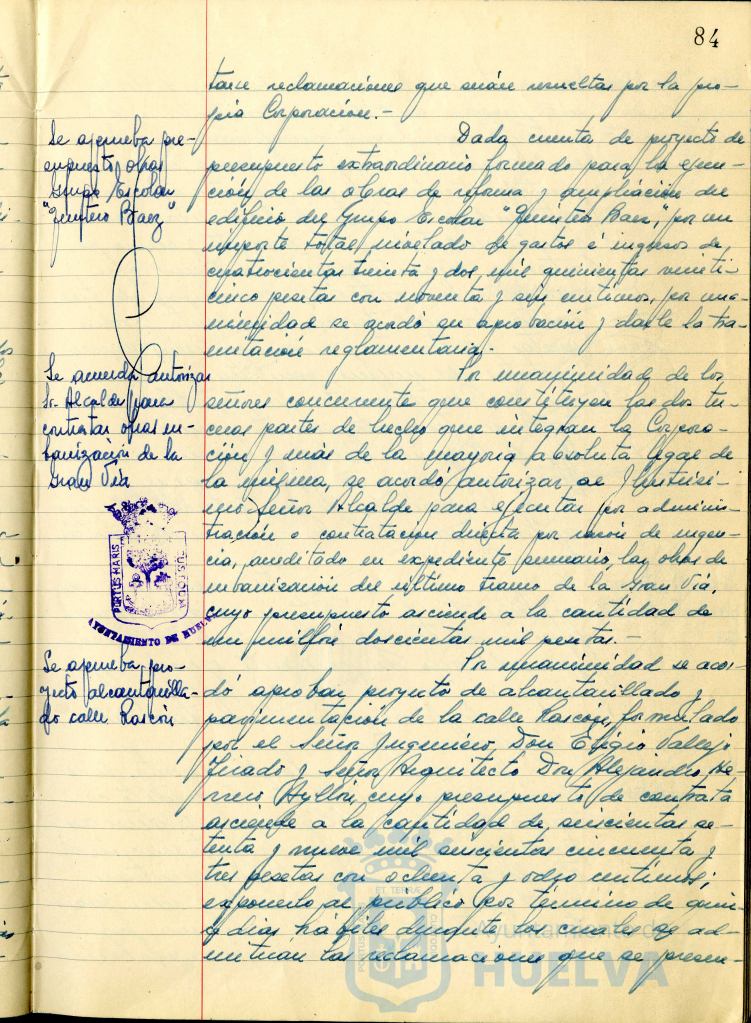 84
tasen reclamaciones que serán resueltas por la pro-
pia Corporación.-
Se aprueba pre-
supuesto obras
Grupo Escolar
"Quintero Baez"
Dada cuenta de proyecto de
presupuesto extraordinario formado para la ejecu-
ción de las obras de reforma y ampliación del
edificio del Grupo Escolar "Quintero Baez", por un
importe total nivelado de gastos é ingresos de
cuatrocientas treinta y dos mil quinientas veinti-
cinco pesetas con noventa y seis centimos, por una-
nimidad se acordó su aprobación y darle la tra-
mitación reglamentaria.-
Se acuerda autorizar
Sr. Alcalde para
contratar obras ur-
banización de la
Gran Vía
Por unanimidad de los
señores concurrente que constituyen las dos ter-
ceras partes de hecho que integran la Corpora-
ción y más de la mayoría absoluta legal de
la misma, se acordó autorizar al Ilustrísi-
mo Señor Alcalde para ejecutar por adminis-
tración o contratación directa por razón de urgen-
cia, acreditado en expediente sumario, las obras de
urbanización del último tramo de la Gran Vía,
cuyo presupuesto asciende a la cantidad de
un millón doscientas mil pesetas.-
PORTUS MARIS
CUSTODIA
AYUNTAMIENTO DE HUELVA
Se aprueba pro-
yecto alcantarilla-
do calle Rascón
Por unanimidad se acor-
dó aprobar proyecto de alcantarillado y
pavimentación de la calle Rascón, formulado
por el Señor Ingeniero, Don Eligio Vallejo
Tirado y Señor Arquitecto Don Alejandro He-
rrero Ayllón, cuyo presupuesto de contrata
asciende a la cantidad de seiscientas se-
tenta y nueve mil seiscientas cincuenta y
tres pesetas con ochenta y ocho centimos;
exponerlo al público por término de quin-
ce días hábiles durante los cuales se ad-
mitirán las reclamaciones que se presen-
PORTUS MARIS ET TERRAE CUSTODIA
Ayuntamiento de
HUELVA